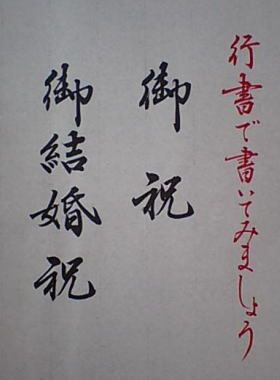 行書で書いてみましょう
御祝
御結婚祝